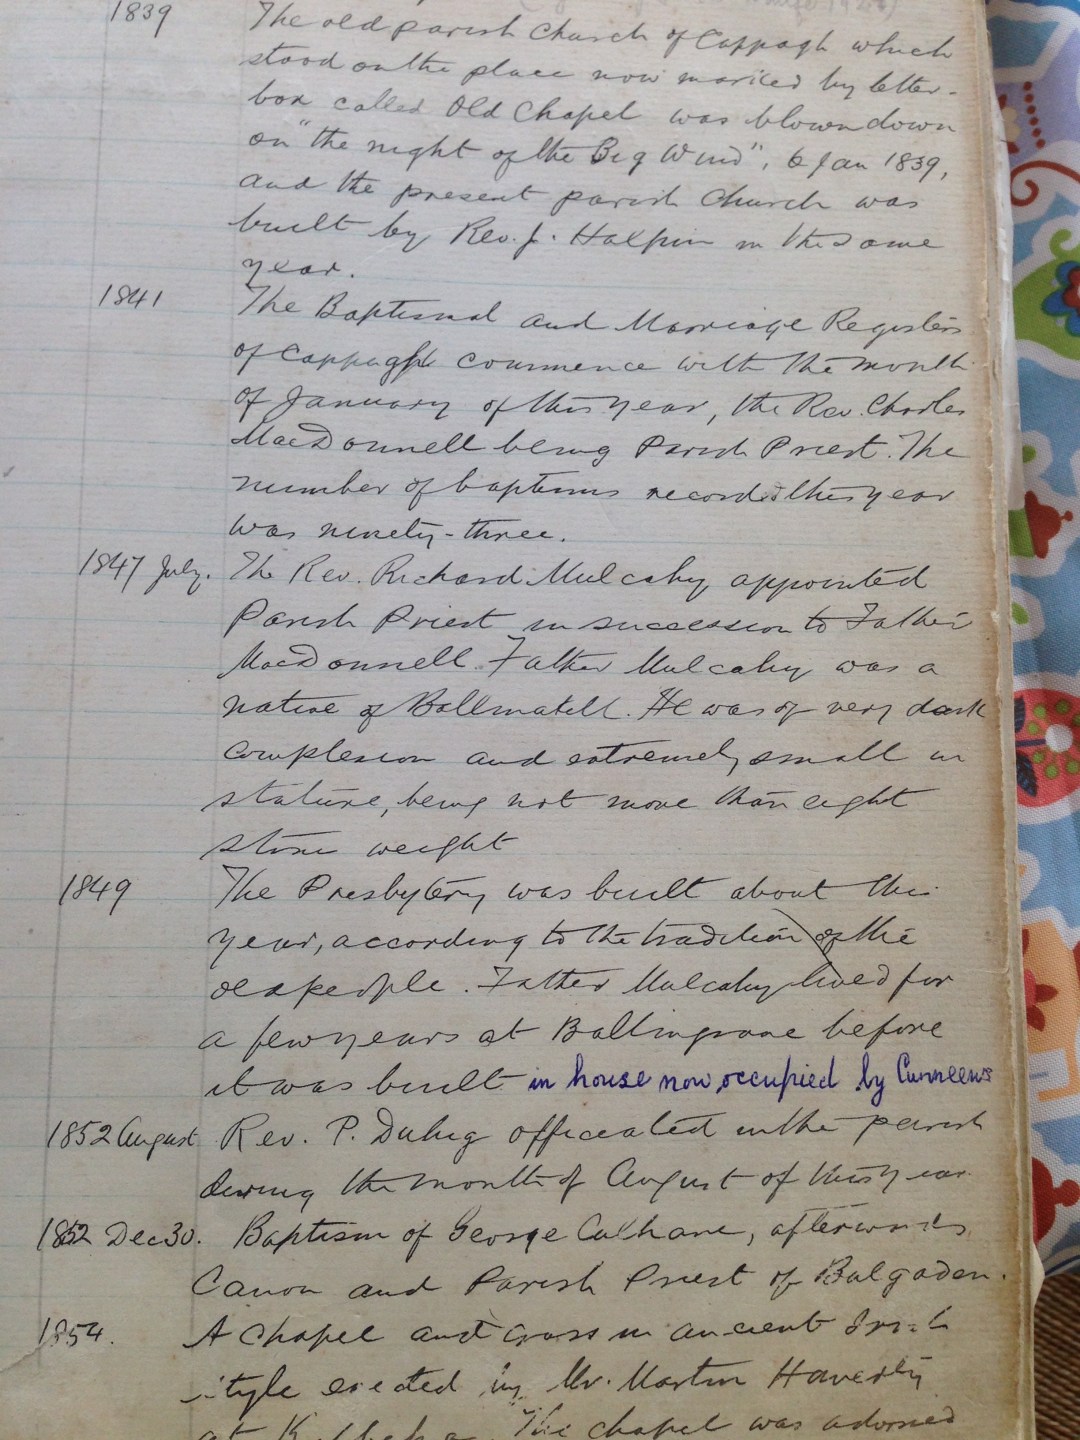 1839 The old parish church of Cappagh which
stood on the place now marked by letter-
box called Old Chapel was blown down
on "the night of the Big Wind", 6 Jan 1839,
and the present parish church was
built by Rev. J. Halpin in the same
year.
1841 The Baptismal and Marriage Registers
of Cappagh commence with the month
of January of this year, the Rev. Charles
MacDonnell being Parish Priest. The
number of baptisms recorded this year
was ninety-three.
1847 July. The Rev. Richard Mulcahy appointed
Parish Priest in succession to Father
MacDonnell. Father Mulcahy was a
native of Ballinakill. He was of very dark
complexion and extremely small in
stature, being not more than eight
stone weight
1849 The Presbytery was built about this
year, according to the tradition of the
old people. Father Mulcahy lived for
a few years at Ballingrane before
it was built in house now occupied by Cunneens
1852 August Rev. P. Duhig officiated in the parish
during the month of August of this year.
1852 Dec 30. Baptism of George Culhane, afterwards
Canon and Parish Priest of Bulgaden.
1854. A chapel and cross in ancient Irish
style erected by Mr. Martin Haverty
at The chapel was adorned